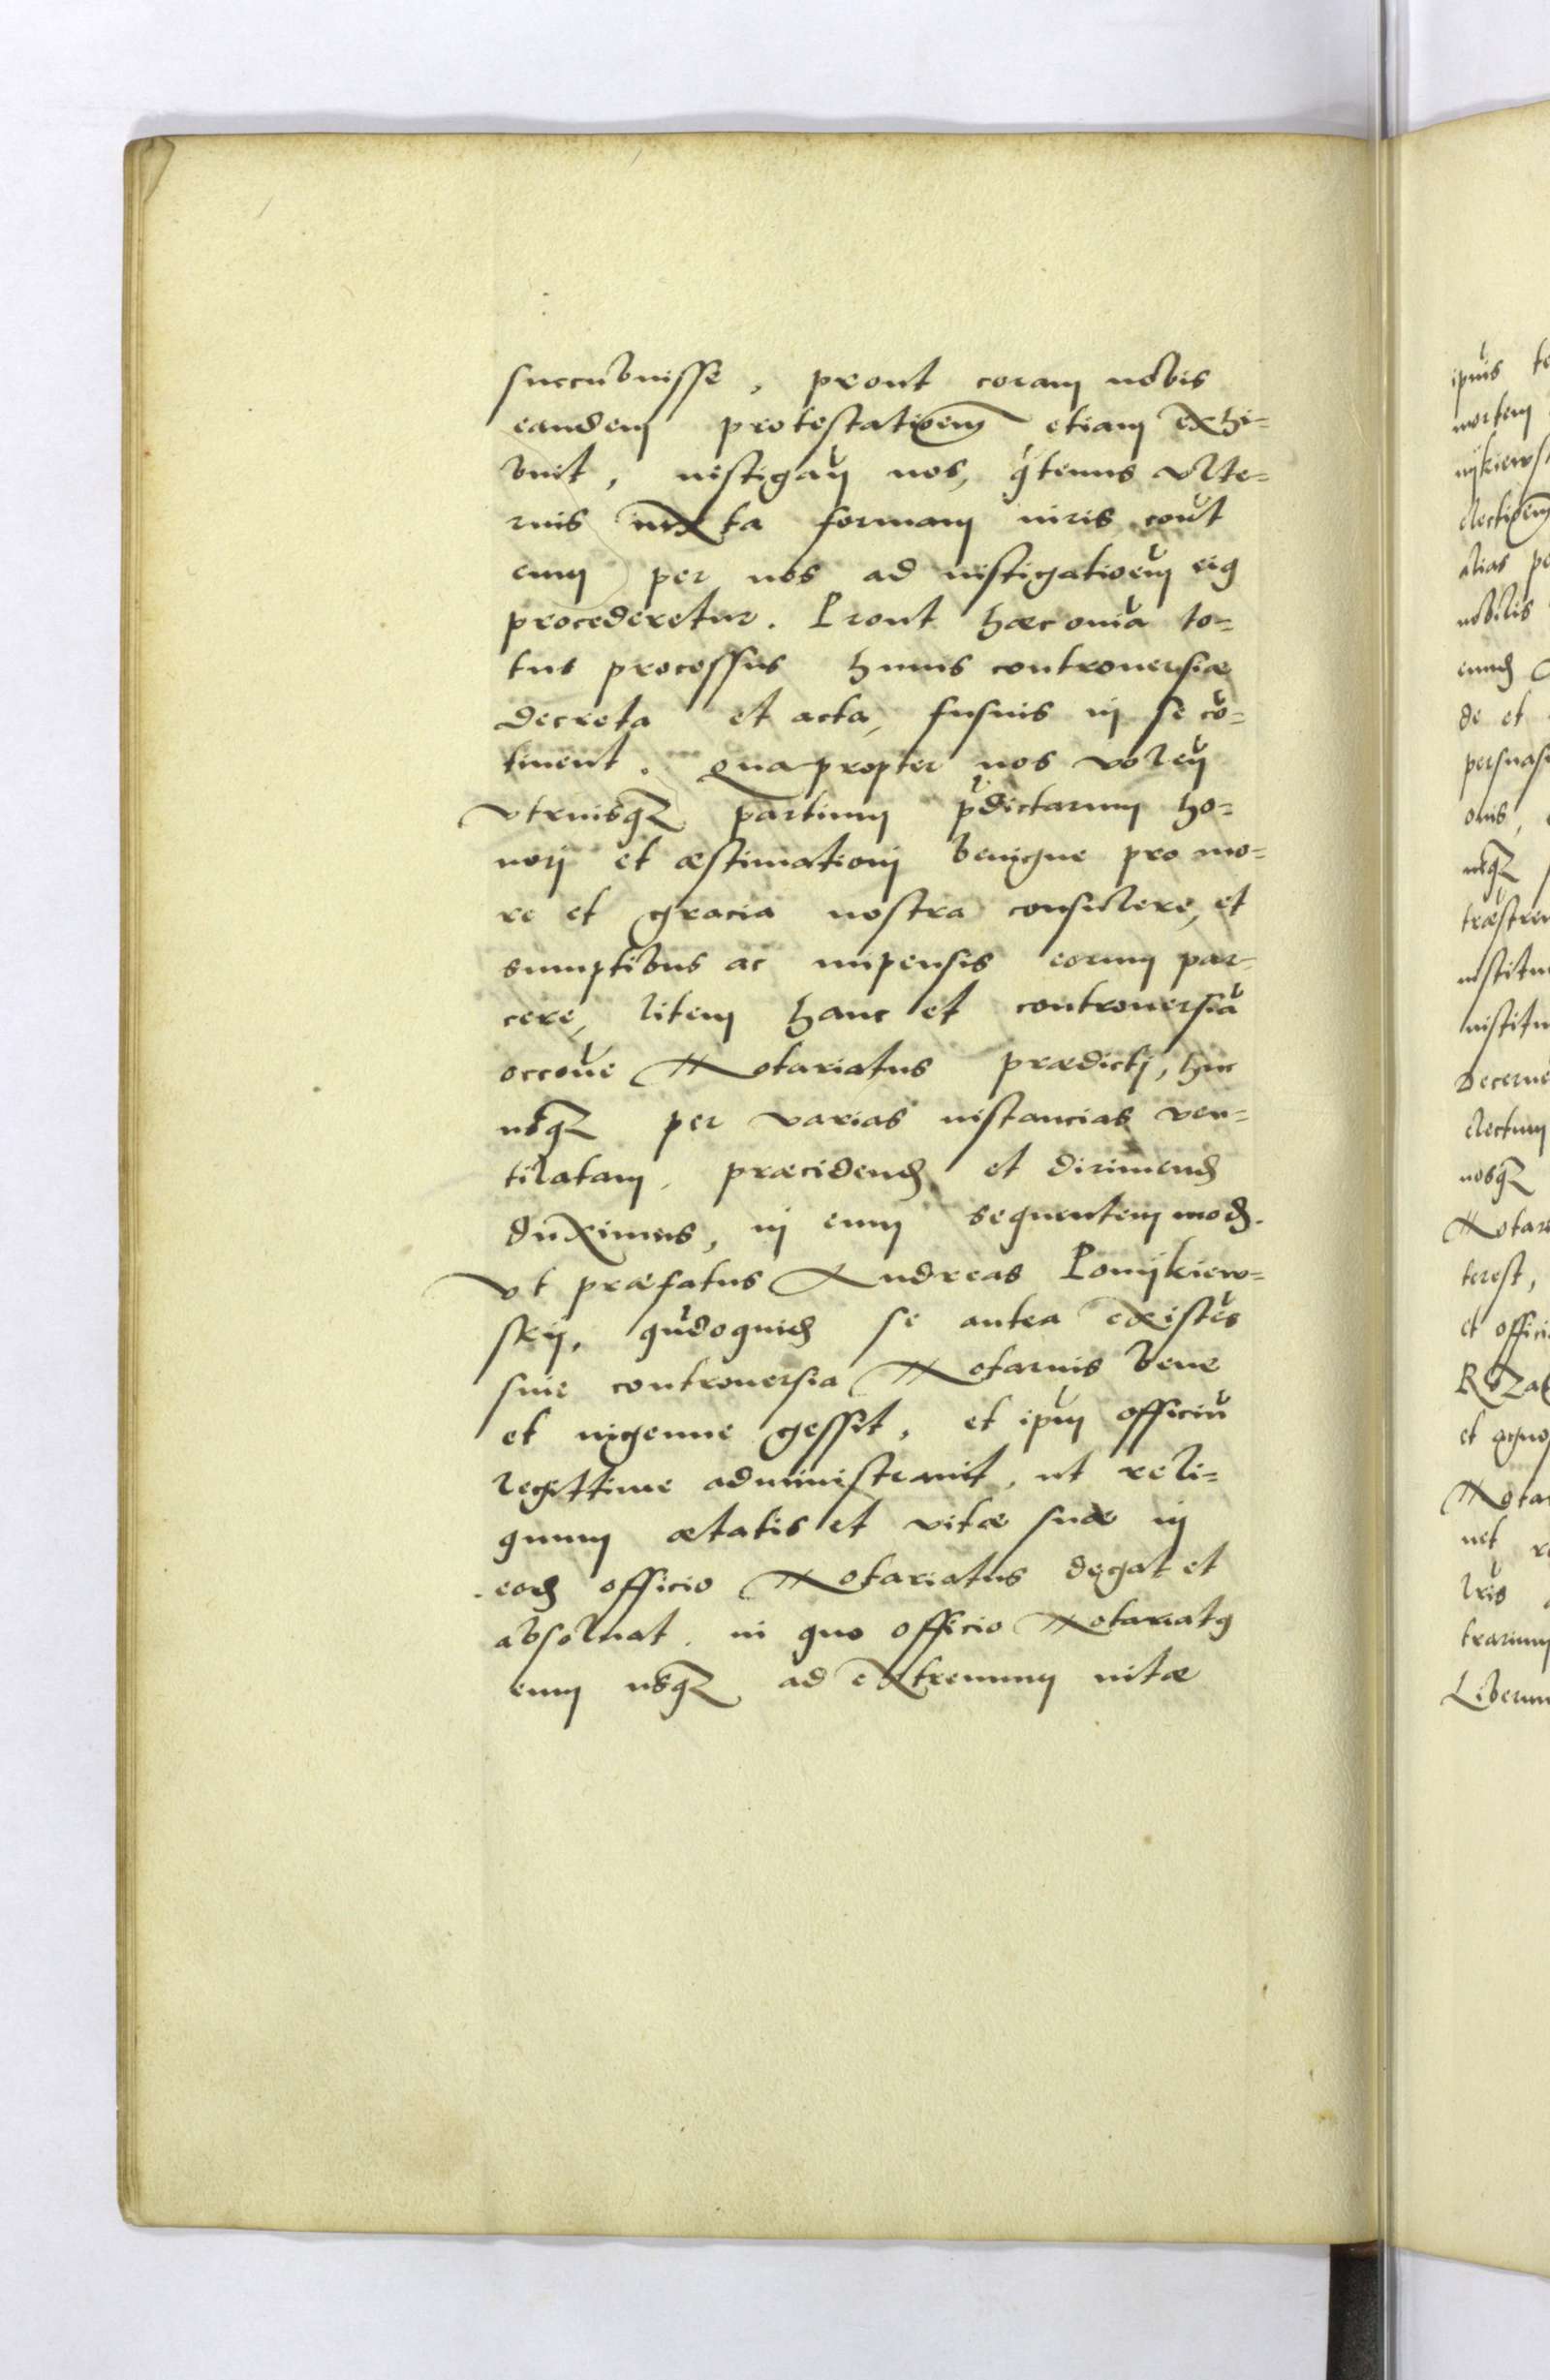 succubuisse, prout coram nobis
eandem protestatioem etiam exhi=
buit, instigan̄ nos, q̄tenus ulte=
rius iuxta formam iuris cont̄
eum per nos ad instigatioem̄ eiꝰ
procederetur. Prout hæc omīa to=
tus processus huius controuersiæ
decreta et acta, fusius in se cō=
tinent. Quapropter nos volen̄
vtriusqꝫ partium p̄dictarum ho=
nori et æstimationi benigne pro mo=
re et gracia nostra consulere, et
sumptibus ac impensis eorum par=
cere, litem hanc et controuersiā
occoē Notariatus prædicti, huc
usqꝫ per varias instancias ven=
tilatam, præcidend et dirimend
duximus, in eum sequentem mod.
Vt præfatus Andreas Lomÿkiew=
skÿ, qūdoquid se antea existēs
sine controuersia Notarius bene
et ingenue gessit, et ipm̄ officiū
legittime administrauit, ut reli=
quum ætatis et vitæ suæ in
eod officio Notariatus degat et
absoluat. in quo officio Notariatꝰ
eum usqꝫ ad extremum uitæ
ipius
mortem
nÿkiews
electioem
alias
nobilis
eund
de et
persuas
usqꝫ
institu
institu
decerne
electum
nosqꝫ
Notar
terest,
et offici
et
Notar
trarium
Liberum